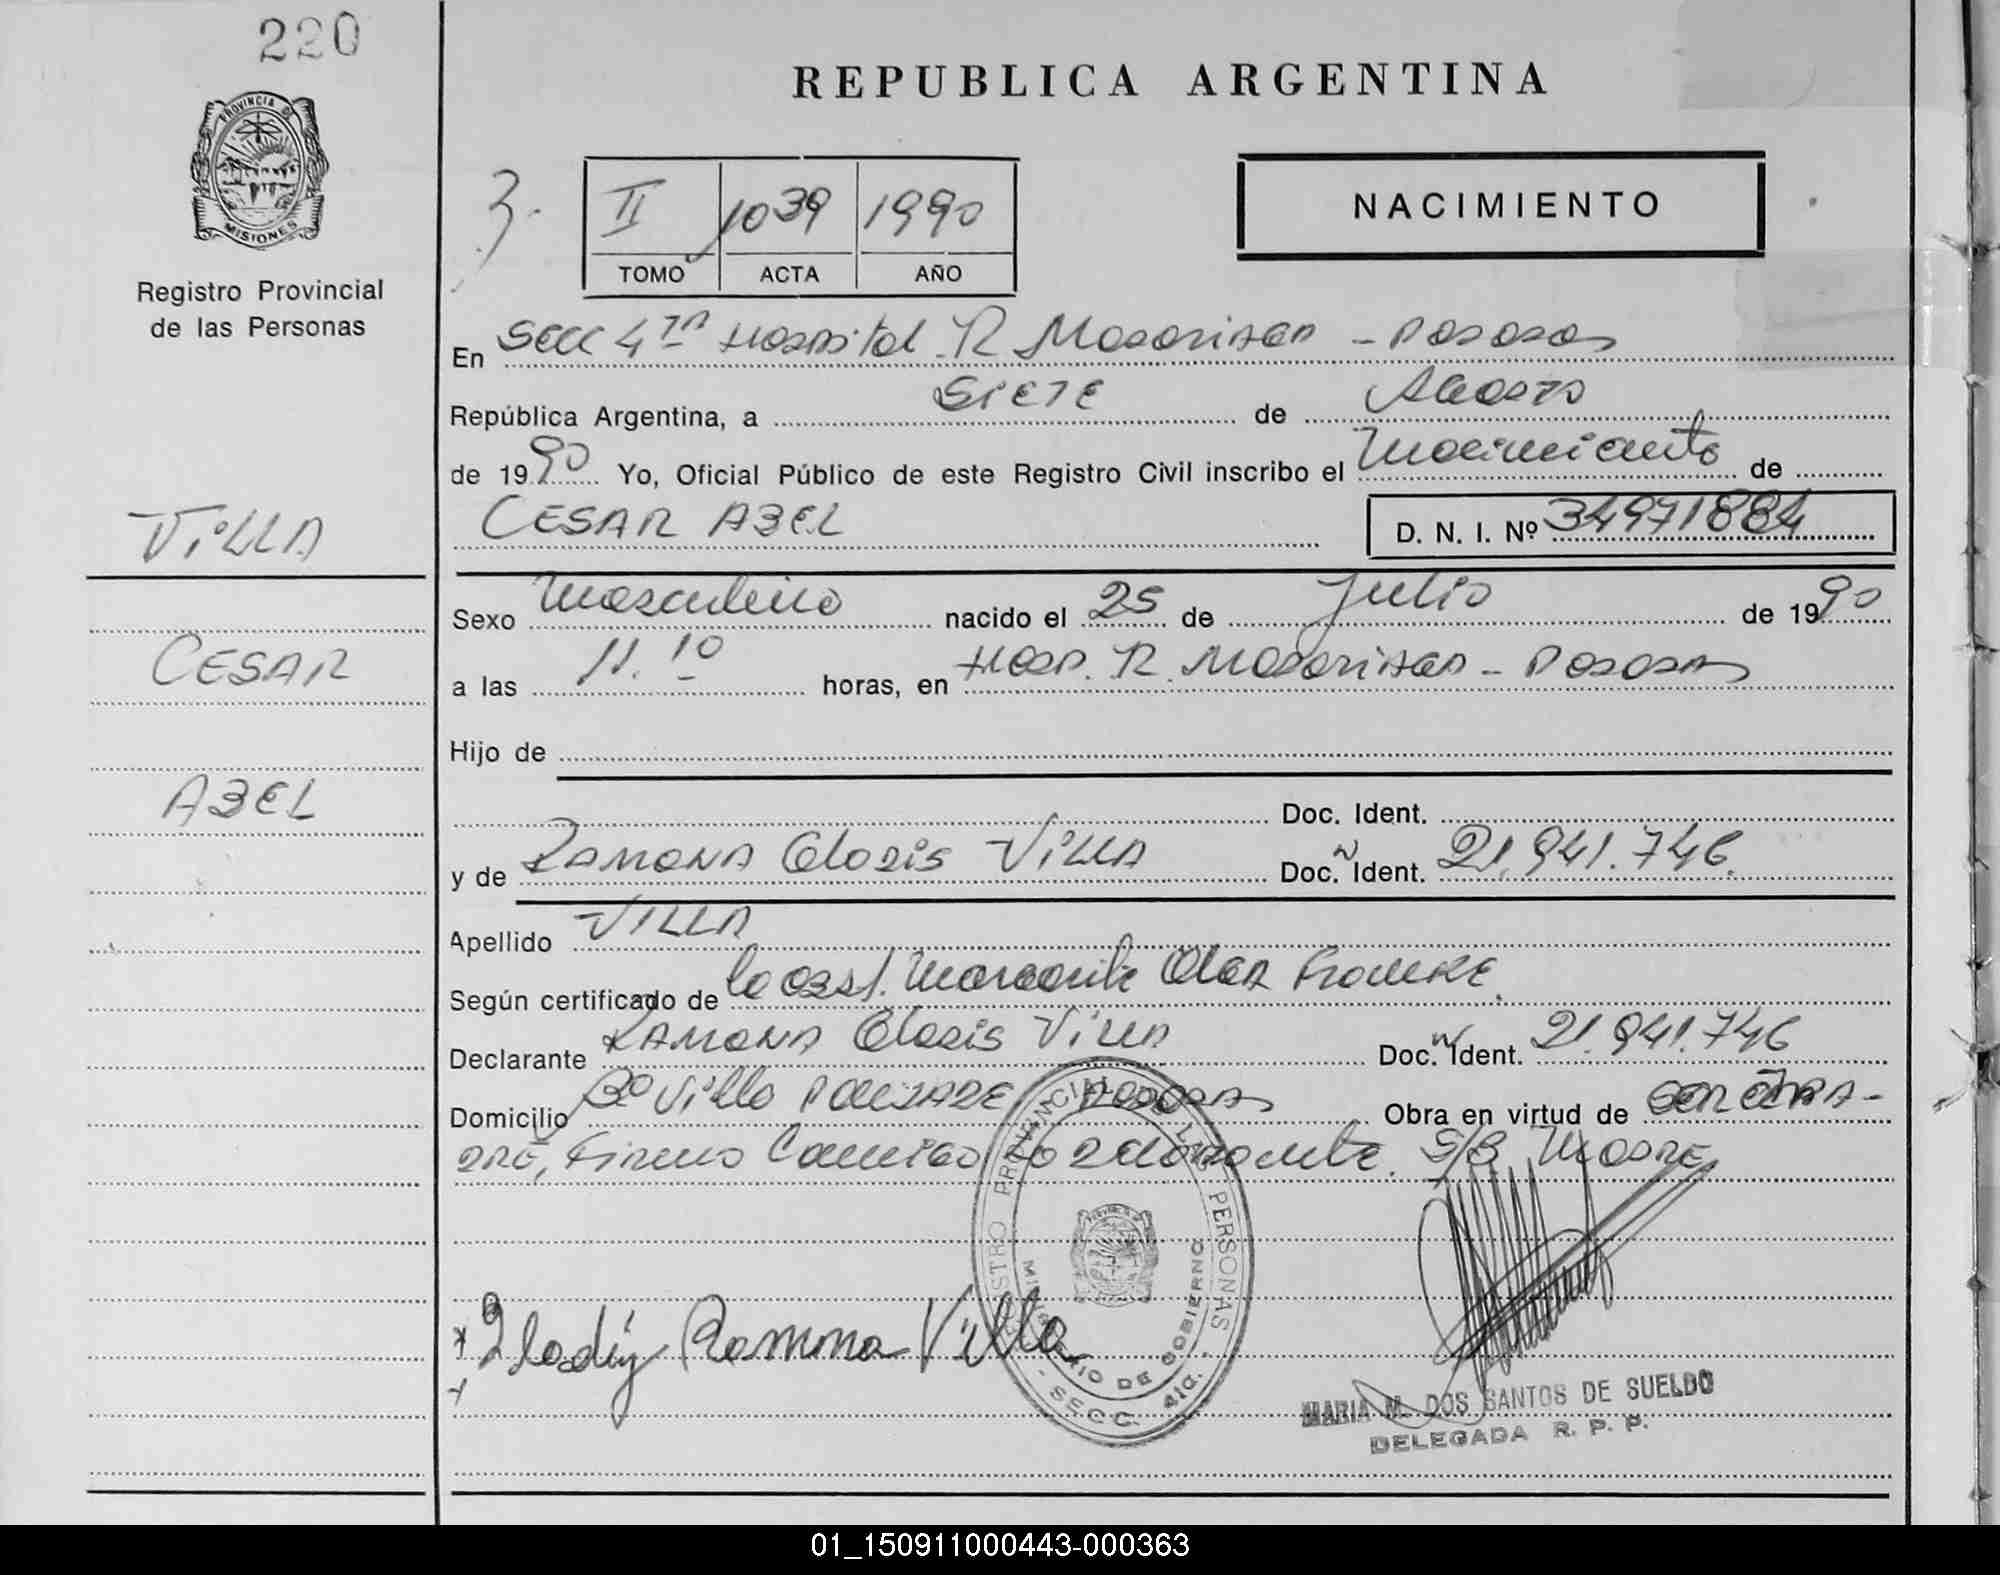 220
REPUBLICA ARGENTINA
PROVINCIA DE
MISIONES
Registro Provincial
de las Personas
3.
II 1039 1990
TOMO ACTA AÑO
NACIMIENTO
En Secc 4ta Hospital R Madariaga - Posadas
República Argentina, a Siete de Agosto
de 1990 Yo, Oficial Público de este Registro Civil inscribo el nacimiento de
CESAR ABEL D. N. I. Nº 34971884
VILLA
CESAR
ABEL
Sexo Masculino nacido el 25 de Julio de 1990
a las 11.10 horas, en Hosp. R. Madariaga - Posadas
Hijo de
Doc. Ident.
y de Ramona Gladis Villa Doc. Ident. 21.941.746
Apellido VILLA
Según certificado de la obst. Margarita Olga
Declarante Ramona Gladis Villa Doc. Ident. 21.941.746
Domicilio Bº Villa Posadas Obra en virtud de
Firma Conmigo la declarante. S/B Madre
Gladiz Ramona Villa
REGISTRO PROVINCIAL DE LAS PERSONAS
MINISTERIO DE GOBIERNO
- SECC. 4ta. -
MARIA M. DOS SANTOS DE SUELDO
DELEGADA R. P. P.
01_150911000443-000363